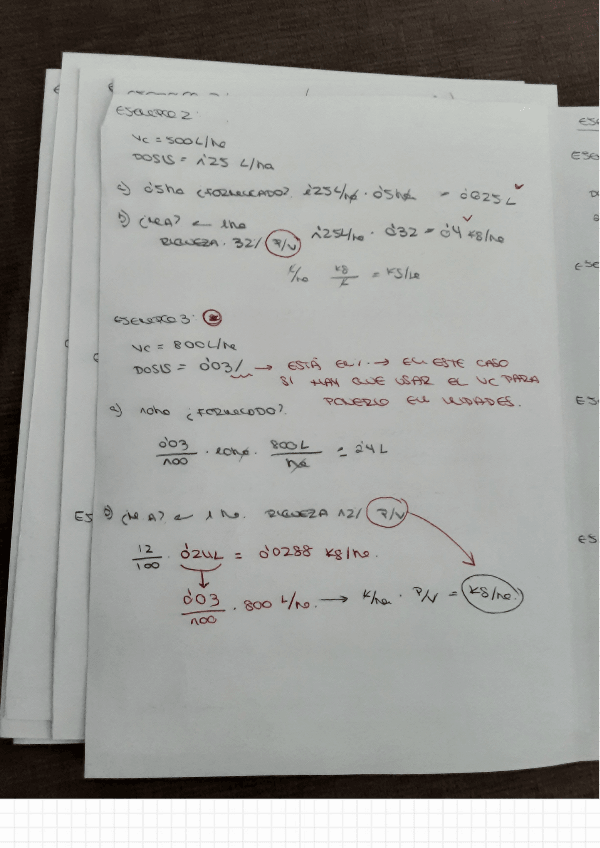 EJERCICIO 2:
VC = 500 L/ha
DOSIS = 1'25 L/ha
a) 0'5 ha ¿FORMULADO? 1'25 L/ha · 0'5 ha = 0'625 L
b) ¿kg A? ← 1 ha
RIQUEZA · 32% P/V 1'25 L/ha · 0'32 = 0'4 kg/ha
L/ha kg/L = kg/ha
EJERCICIO 3:
VC = 800 L/ha
DOSIS = 0'03% → ESTÁ EN % → EN ESTE CASO
SI HAY QUE USAR EL VC PARA
PONERLO EN UNIDADES.
a) 10 ha ¿FORMULADO?
0'03/100 · 10 ha · 800 L/ha = 2'4 L
b) ¿kg A? ← 1 ha. RIQUEZA 12% P/V
ES
12/100 · 0'24 L = 0'0288 kg/ha.
0'03/100 · 800 L/ha. → L/ha · P/V = kg/ha.